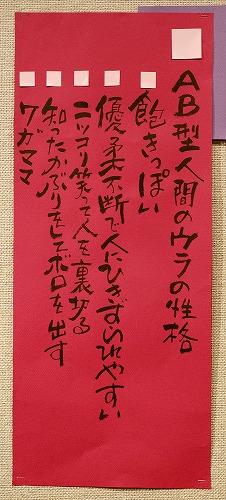 AB型人間のウラの性格
飽きっぽい
優柔不断で人にひきずられやすい
ニッコリ笑って人を裏切る
知ったかぶりをしてボロを出す
ワガママ